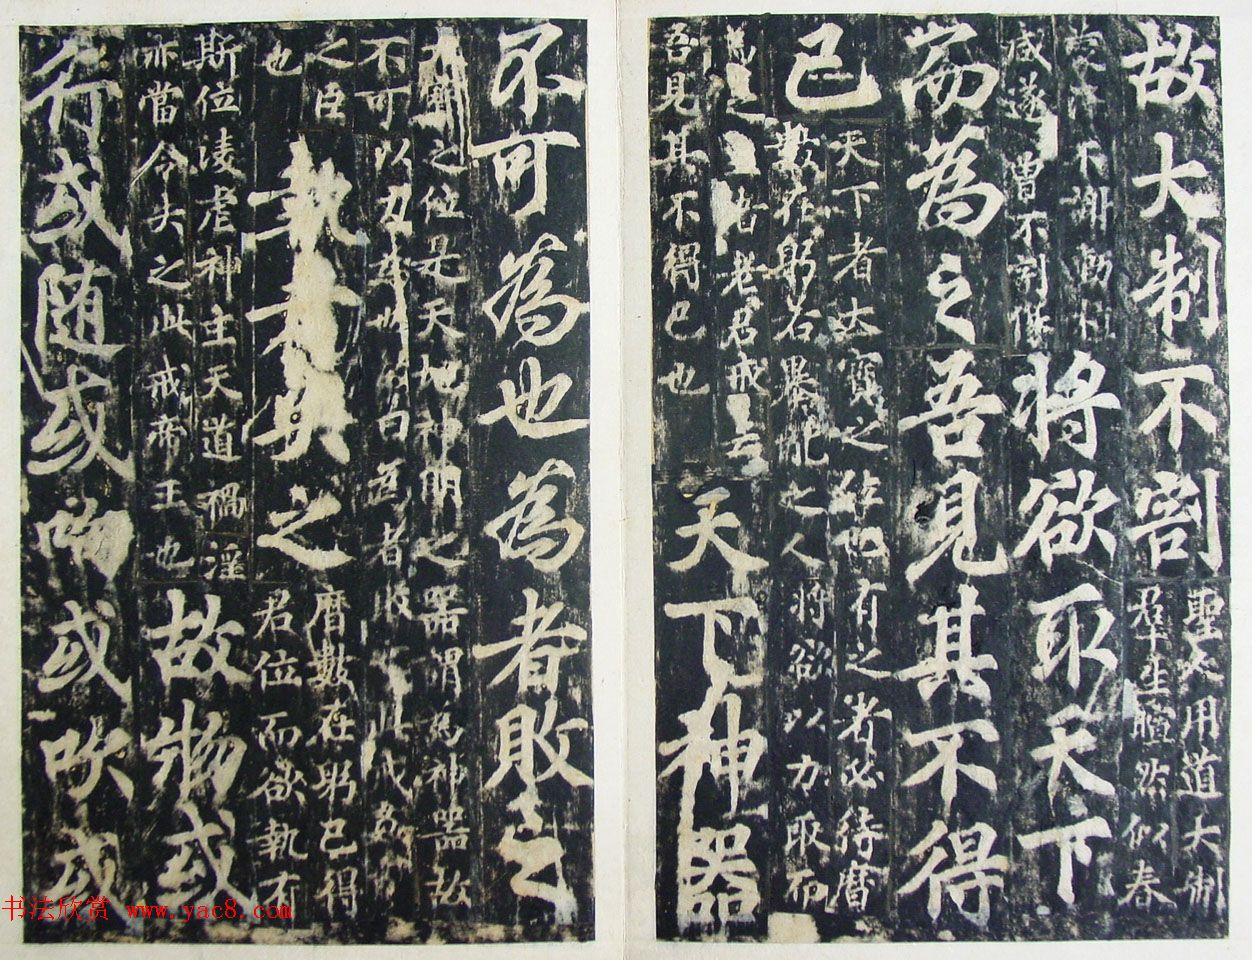 故大制不割
聖人用道大制
羣生暄然似春
不謝動植
咸遂曾不割傷
將欲取天下
而為之吾見其不得
已
天下者大寶之位也有之者必待曆
數在躬若暴亂之人將欲以力取而
為之老君戒云
吾見其不得已也
天下神器
不可為也為者敗之
大寶之位是天地神明之器謂為神器故
不可以力為也故曰為者敗此戒
之臣
也
執者失之
曆數在躬已得
君位而欲執有
斯位淩虐神主天道禍淫
亦當令失之此戒帝王也
故物或
行或随或呴或吹或
书法欣赏 www.yac8.com